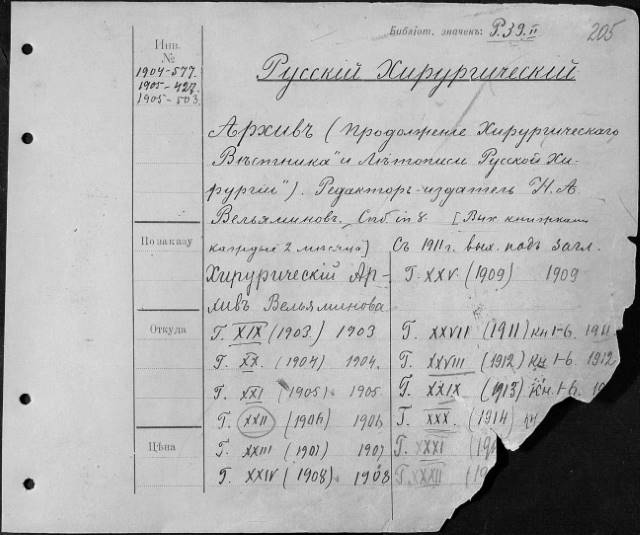 Библіот. значенъ: Р.39.II 205
Инв.
№
1904-577.
1905-427.
1905-503.
Русскій Хирургическій
Архивъ (продолженіе Хирургическаго
Вѣстника" и Лѣтописи Русской Хи-
рургіи"). Редакторъ-издатель Н. А
Вельяминовъ. Спб. in 8. [Вых. книжками
По заказу
каждые 2 мѣсяца] Съ 1911 г. вых. подъ загл.
Хирургическій Ар-
хивъ Вельяминова
Г. XXV (1909) 1909
Откуда
Г. XIX (1903.) 1903
Г. XX. (1904) 1904.
Г. XXI (1905) 1905
Г. XXII (1906) 1906
Цѣна
Г. XXIII (1907) 1907
Г. XXIV (1908) 1908
Г. XXVII (1911) кн 1-6. 1911
Г. XXVIII (1912) кн 1-6. 1912
Г. XXIX (1913) кн. 1-6.
Г. XXX. (1914)
Г. XXXI
Г. XXXII